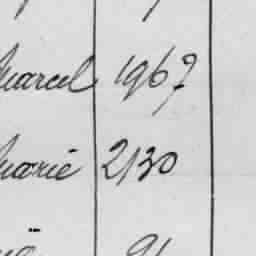 Marcel 1967
Marie 2130